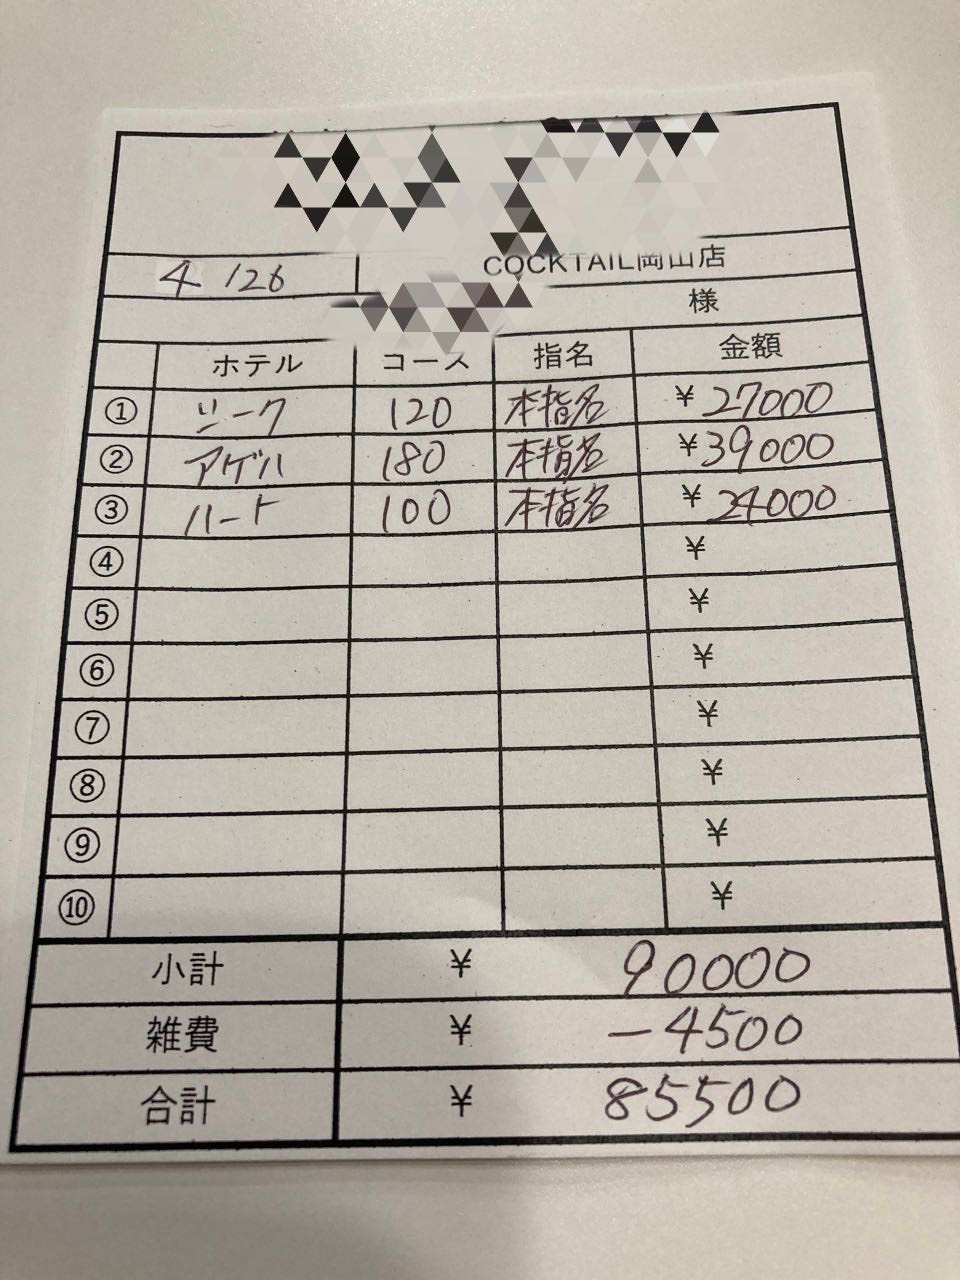 4/26 COCKTAIL岡山店
様
ホテル コース 指名 金額
① シーク 120 本指名 ¥ 27000
② アゲハ 180 本指名 ¥ 39000
③ ハート 100 本指名 ¥ 24000
④ ¥
⑤ ¥
⑥ ¥
⑦ ¥
⑧ ¥
⑨ ¥
⑩ ¥
小計 ¥ 90000
雑費 ¥ -4500
合計 ¥ 85500